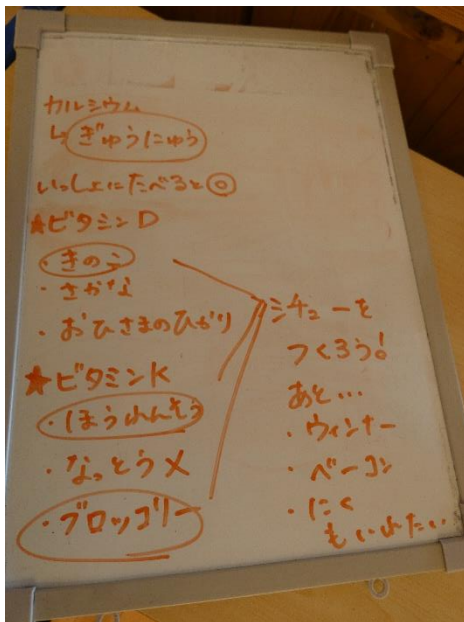 カルシウム
↳ ぎゅうにゅう
いっしょにたべると◎
★ビタミンD
・きのこ
・さかな
・おひさまのひかり
★ビタミンK
・ほうれんそう
・なっとう×
・ブロッコリー
シチューを
つくろう!
あと…
・ウィンナー
・ベーコン
・にく
もいれたい